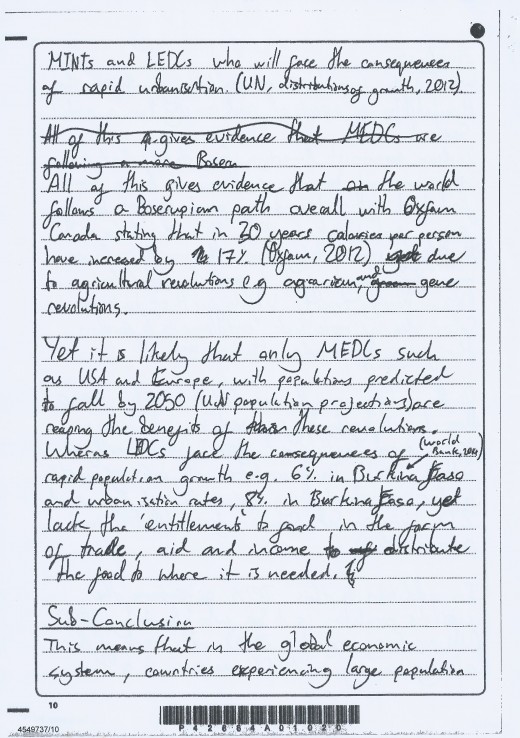 MINTs and LEDCs who will face the consequences
of rapid urbanisation. (UN, distributions of growth, 2012).
All of this gives evidence that MEDCs are
following a more Boseru
All of this gives evidence that on the world
follows a Boserupian path overall with Oxfam
Canada stating that in 30 years calories per person
have increased by 17% (Oxfam, 2012) due
to agricultural revolutions e.g agrarian, and gene
revolutions.
Yet it is likely that only MEDCs such
as USA and Europe, with populations predicted
to fall by 2050 (UN population projections) are
reaping the benefits of these revolutions.
Wheras LDCs face the consequences of (World Bank, 2014)
rapid population growth e.g. 6% in Burkina Faso
and urbanisation rates, 8% in Burkina Faso, yet
lack the 'entitlement' to food in the form
of trade, aid and income to distribute
the food to where it is needed.
Sub-Conclusion
This means that in the global economic
system, countries experiencing large population
10
4549737/10
P42664A01020